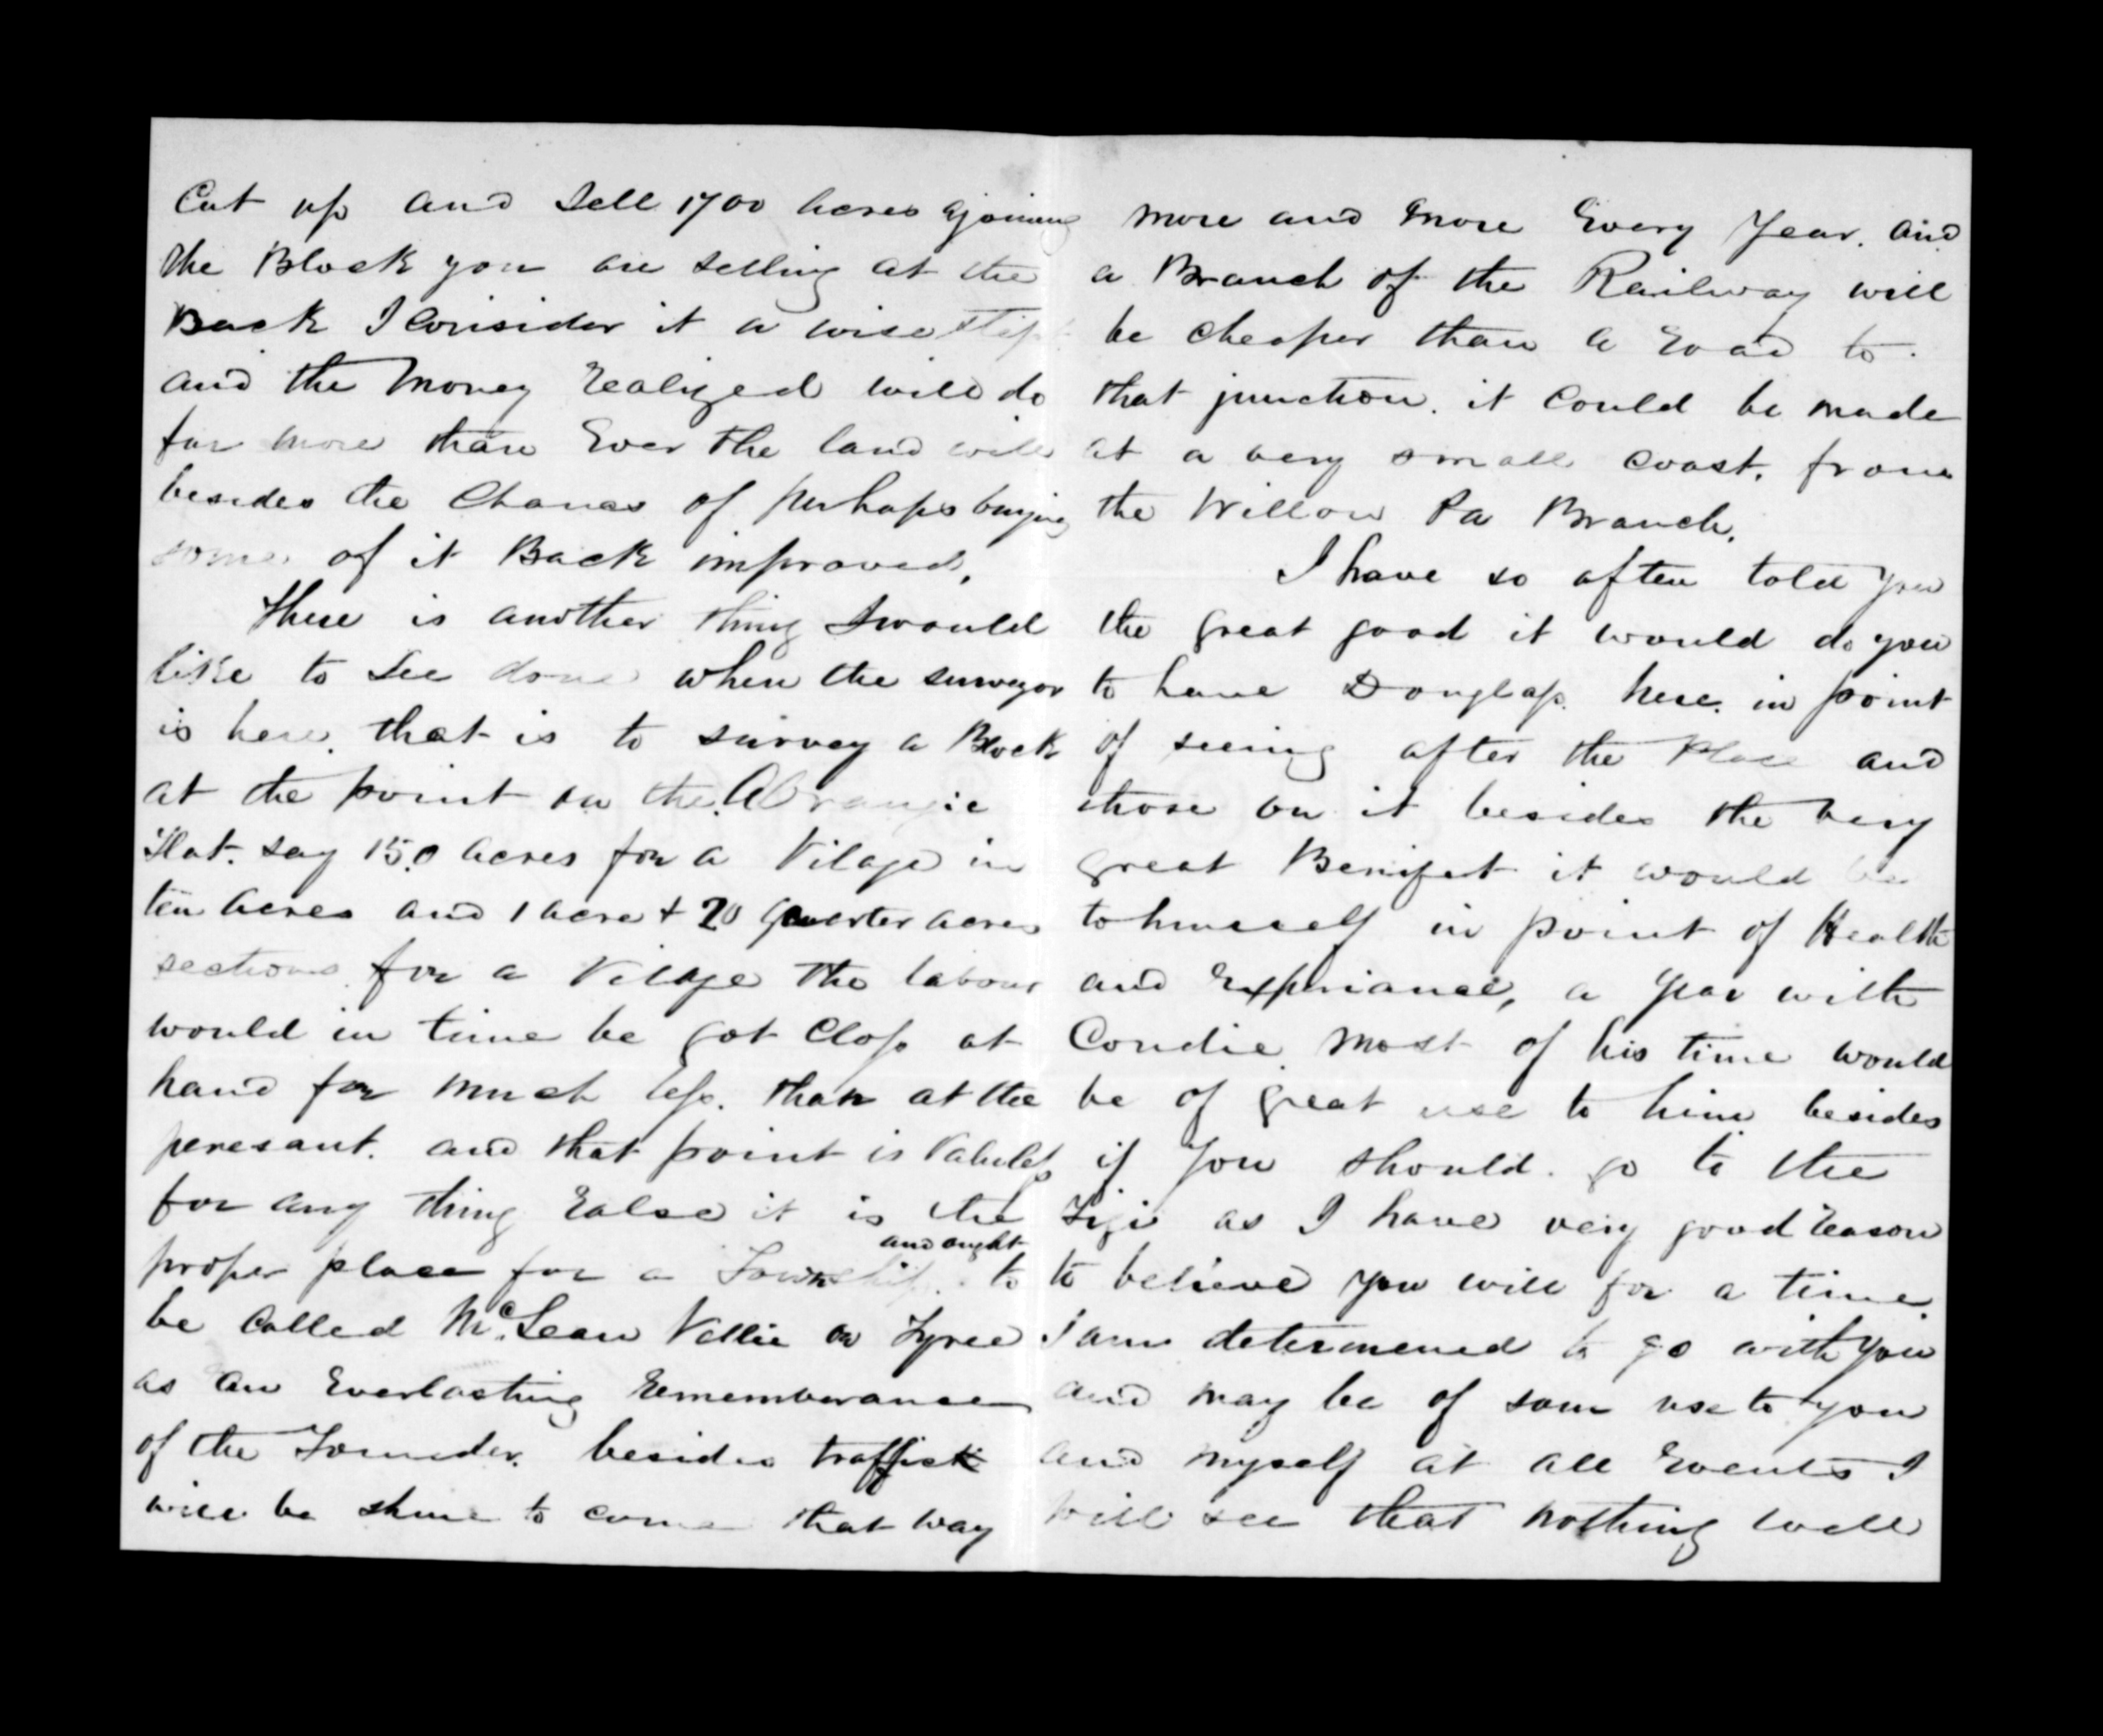 Cut up and Sell 1700 acres ajoining
the Block you are selling at the
Back I Consider it a wise Step
and the Money realized will do
far more than Ever the land will
besides the Chances of perhaps buying
some of it Back improved,
There is another thing I would
like to See done when the surveyor
is here. that is to survey a Block
at the point on the
Flat. say 150 acres for a Vilage in
ten acres and 1 acre & 20 quarter acres
sections for a Vilage The labour
would in time be got Closs at
hand for much less. than at the
peresant. and that point is Valuless
for any thing Ealse it is the
proper place for a Township. and ought to
be Called McLean Vallie or Tyree
as an Everlasting rememberance
of the Founder. besides traffick
will be shure to come that way
more and more Every Year. and
a Branch of the Railway will
be cheaper than a road to
that junction. it Could be made
at a very small coast. from
the Willow Pa Branch.
I have so often told you
the great good it would do you
to have Douglass. here. in point
of seeing after the Place and
those on it besides the very
great Benifit it would be
to himself in point of Health
and Expiriance, a Year with
Condie most of his time would
be of great use to him besides
if You should. go to the
Fiji as I have very good reason
to believe you will for a time
I am determened to go with You
and may be of som use to you
and myself at all Events I
will see that nothing will